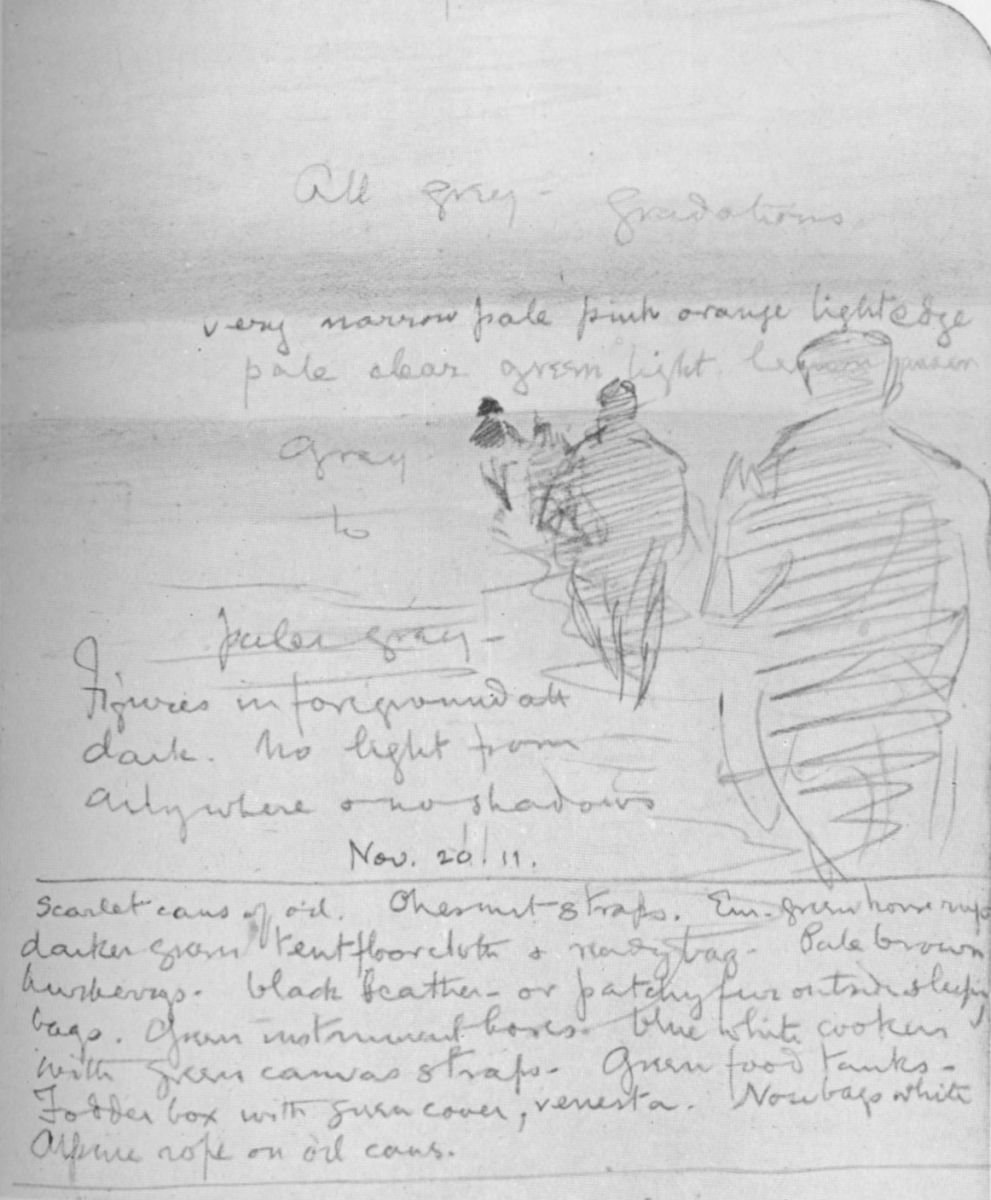 All grey - gradations
very narrow pale pink orange light edge
pale clear green light lemon
Grey
to
paler grey -
Figures in foreground all
dark. No light from
anywhere & no shadows
Nov. 20. 11.
Scarlet cans of oil. Chesnut straps. Em. green horse rugs
darker green tent floorcloth & ready bag. Pale brown
burberrys. black leather - or patchy fur outside sleeping
bags. Green instrument boxes. blue white cookers
with green canvas straps. Green food tanks -
Fodder box with green cover, venesta. Nosebags white
Alpine rope on oil cans.